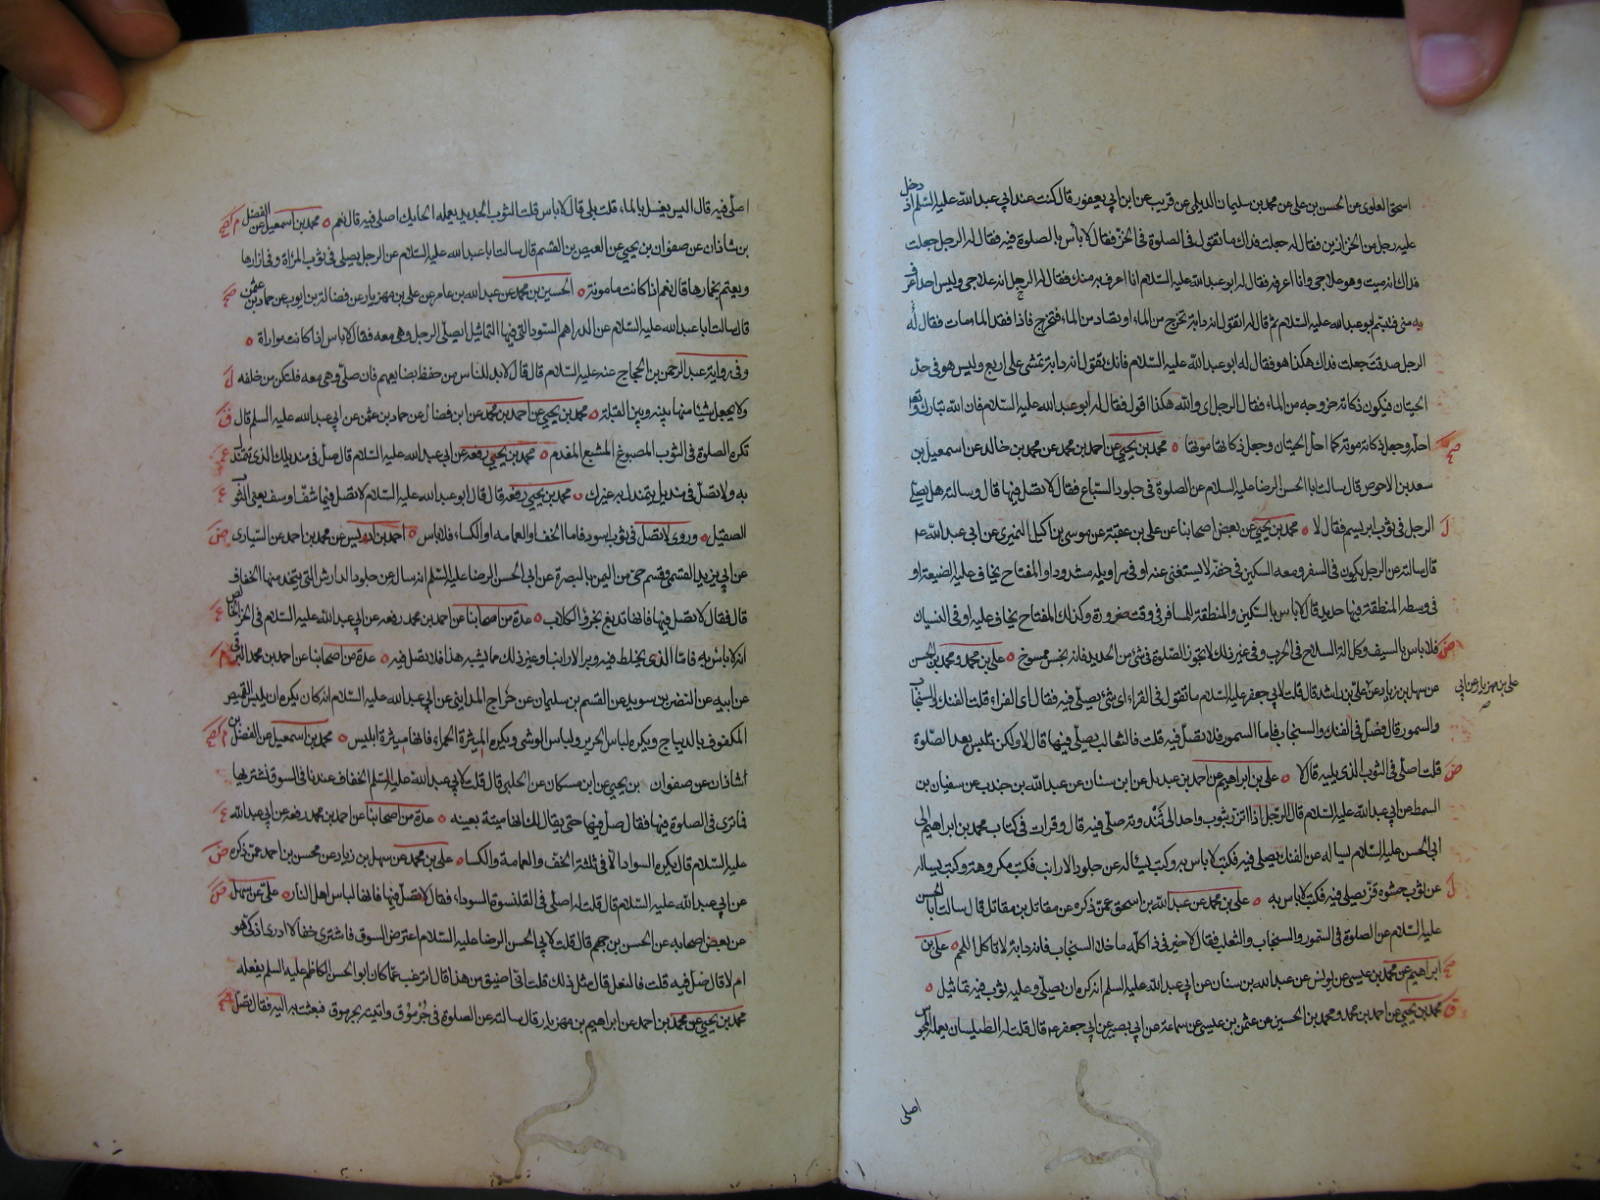 اسحق العلوى عن الحسن بن على عن محمد بن سليمان الديلى عن قريب عن ابن ابي يعفور قال كنت عند ابي عبد الله عليه السلم اذ دخل
عليه رجل من الخزازين فقال له جعلت فداك ما تقول فى الصلوة فى الخز فقال لا بأس بالصلوة فيه فقال له الرجل جعلت
فداك انه ميت وهو علاجى وانا اعرفه فقال له ابو عبد الله عليه السلام انا اعرف به منك فقال له الرجل انه علاجى وليس احد اعرف
به منى فتبسم ابو عبد الله عليه السلام ثم قال له اتقول انه دابة تخرج من الماء او تصاد من الماء فتخرج فاذا فقد الماء مات فقال له
الرجل صدقت جعلت فداك هكذا هو فقال له ابو عبد الله عليه السلام فانك تقول انه دابة تمشى على اربع وليس هو فى حدّ
الحيتان فيكون ذكاته خروجه من الماء فقال الرجل اى والله هكذا اقول فقال له ابو عبد الله عليه السلام فان الله تبارك وتعالى
احله وجعل ذكاته موته كما احل الحيتان وجعل ذكاتها موتها ٥ محمد بن يحيى عن احمد بن محمد عن محمد بن خالد عن اسمعيل بن
سعد بن الاحوص قال سالت ابا الحسن الرضا عليه السلام عن الصلوة فى جلود السباع فقال لا تصل فيها قال وسالته هل يصلى
الرجل فى ثوب ابريسم فقال لا ٥ محمد بن يحيى عن بعض اصحابنا عن على بن عقبة عن موسى بن اكيل النميرى عن ابي عبد الله ع
قال سالته عن الرجل يكون فى السفر ومعه السكين فى خفه لا يستغنى عنه او فى سراويله مشدودا والمفتاح يخاف عليه الضيعة او
فى وسطه المنطقة فيها حديد قال لا باس بالسكين والمنطقة للمسافر فى وقت ضرورة وكذلك المفتاح يخاف عليه او فى النسيان
فلا باس بالسيف وكل الة السلاح فى الحرب وفى غير ذلك لا تجوز الصلوة فى شئ من الحديد فانه نجس ممسوخ ٥ على بن محمد ومحمد بن الحسن
عن سهل بن زياد عن على بن مهزيار عن ابي على بن راشد قال قلت لابي جعفر عليه السلام ما تقول فى الفراء اى شئ يصلى فيه فقال اى الفراء قلت الفنك والسنجاب
والسمور قال فصل فى الفنك والسنجاب فاما السمور فلا تصل فيه قلت فالثعالب يصلى فيها قال لا ولكن تلبس بعد الصلوة
قلت اصلى فى الثوب الذى يليه قال لا ٥ على بن ابراهيم عن احمد بن عبديل عن ابن سنان عن عبد الله بن جندب عن سفيان بن
السمط عن ابي عبد الله عليه السلام قال الرجل اذا اتزر بثوب واحد الى ثندوته صلى فيه قال وقرات فى كتاب محمد بن ابراهيم الى
ابي الحسن عليه السلام يساله عن الفنك يصلى فيه فكتب لا باس به وكتب يساله عن جلود الارانب فكتب مكروهة وكتب يساله
عن ثوب حشوه قز يصلى فيه فكتب لا باس به ٥ على بن محمد عن عبد الله بن اسحق عمن ذكره عن مقاتل بن مقاتل قال سالت ابا الحسن
عليه السلام عن الصلوة فى السمور والسنجاب والثعلب فقال لا خير فى ذا كله ما خلا السنجاب فانه دابة لا تاكل اللحم ٥ على بن
ابراهيم عن محمد بن عيسى عن يونس عن عبد الله بن سنان عن ابي عبد الله عليه السلم انه كره ان يصلى وعليه ثوب فيه تماثيل ٥
محمد بن يحيى عن احمد بن محمد ومحمد بن الحسين عن عثمن بن عيسى عن سماعة عن ابي بصير عن ابي جعفر ع قال قلت له الطيلسان يعمله المجوس
اصلى
اصلى فيه قال اليس يغسل بالماء قلت بلى قال لا باس قلت الثوب الجديد يعمله الحايك اصلى فيه قال نعم ٥ محمد بن اسمعيل عن الفضل
بن شاذان عن صفوان بن يحيى عن العيص بن القسم قال سالت ابا عبد الله عليه السلام عن الرجل يصلى فى ثوب المراة وفى ازارها
ويعتم بخمارها قال نعم اذا كانت مامونة ٥ الحسين بن محمد عن عبد الله بن عامر عن على بن مهزيار عن فضالة بن ايوب عن حماد بن عثمن
قال سالت ابا عبد الله عليه السلام عن الدراهم السود التى فيها التماثيل ايصلى الرجل وهى معه فقال لا باس اذا كانت مواراة ٥
وفى رواية عبد الرحمن بن الحجاج عنه عليه السلام قال قال لا بد للناس من حفظ بضايعهم فان صلى وهى معه فلتكن من خلفه
ولا يجعل شيئا منها بينه وبين القبلة ٥ محمد بن يحيى عن احمد بن محمد عن ابن فضال عن حماد بن عثمن عن ابي عبد الله عليه السلم قال
تكره الصلوة فى الثوب المصبوغ المشبع المفدم ٥ محمد بن يحيى رفعه عن ابي عبد الله عليه السلام قال صل فى منديلك الذى تتمندل
به ولا تصل فى منديل يتمندل به غيرك ٥ محمد بن يحيى رفعه قال قال ابو عبد الله عليه السلام لا تصل فيما شف او سف يعنى الثوب
الصقيل ٥ وروى لا تصل فى ثوب اسود فاما الخف او العمامه او الكساء فلا باس ٥ احمد بن ادريس عن محمد بن احمد عن السيارى
عن ابي يزيد القسمى وقسم حى من اليمن بالبصرة عن ابي الحسن الرضا عليه السلم انه سال عن جلود الدارش التى يتخذ منها الخفاف
قال فقال لا تصل فيها فانها تدبغ بخرؤ الكلاب ٥ عدة من اصحابنا عن احمد بن محمد رفعه عن ابي عبد الله عليه السلام فى الخز الخالص
انه لا باس به فاما الذى يخلط فيه وبر الارانب او غير ذلك مما يشبه هذا فلا تصل فيه ٥ عدة من اصحابنا عن احمد بن محمد البرقى
عن ابيه عن النضر بن سويد عن القسم بن سليمان عن جراح المداينى عن ابي عبد الله عليه السلام انه كان يكره ان يلبس القميص
المكفوف بالديباج ويكره لباس الحرير ولباس الوشى ويكره الميثرة الحمراء فانها ميثرة ابليس ٥ محمد بن اسمعيل عن الفضل بن
شاذان عن صفوان بن يحيى عن ابن مسكان عن الحلبى قال قلت لابي عبد الله عليه السلم الخفاف عندنا فى السوق نشتريها
فما ترى فى الصلوة فيها فقال صل فيها حتى يقال لك انها ميتة بعينه ٥ عدة من اصحابنا عن احمد بن محمد رفعه عن ابي عبد الله
عليه السلام قال يكره السواد الا فى ثلثة الخف والعمامة والكسا ٥ على بن محمد عن سهل بن زياد عن محسن بن احمد عمن ذكره
عن ابي عبد الله عليه السلام قال قلت له اصلى فى القلنسوة السوداء فقال لا تصل فيها فانها لباس اهل النار ٥ على عن سهل
عن بعض اصحابه عن الحسن بن جهم قال قلت لابي الحسن الرضا عليه السلام اعترض السوق فاشترى خفا لا ادرى اذكى هو
ام لا قال صل فيه قلت فالنعل قال مثل ذلك قلت انى اضيق من هذا قال اترغب عما كان ابو الحسن الكاظم عليه السلم يفعله
محمد بن يحيى عن محمد بن احمد عن ابراهيم بن مهزيار قال سالته عن الصلوة فى جرموق واتيته بجرموق فبعثت به اليه فقال تصل